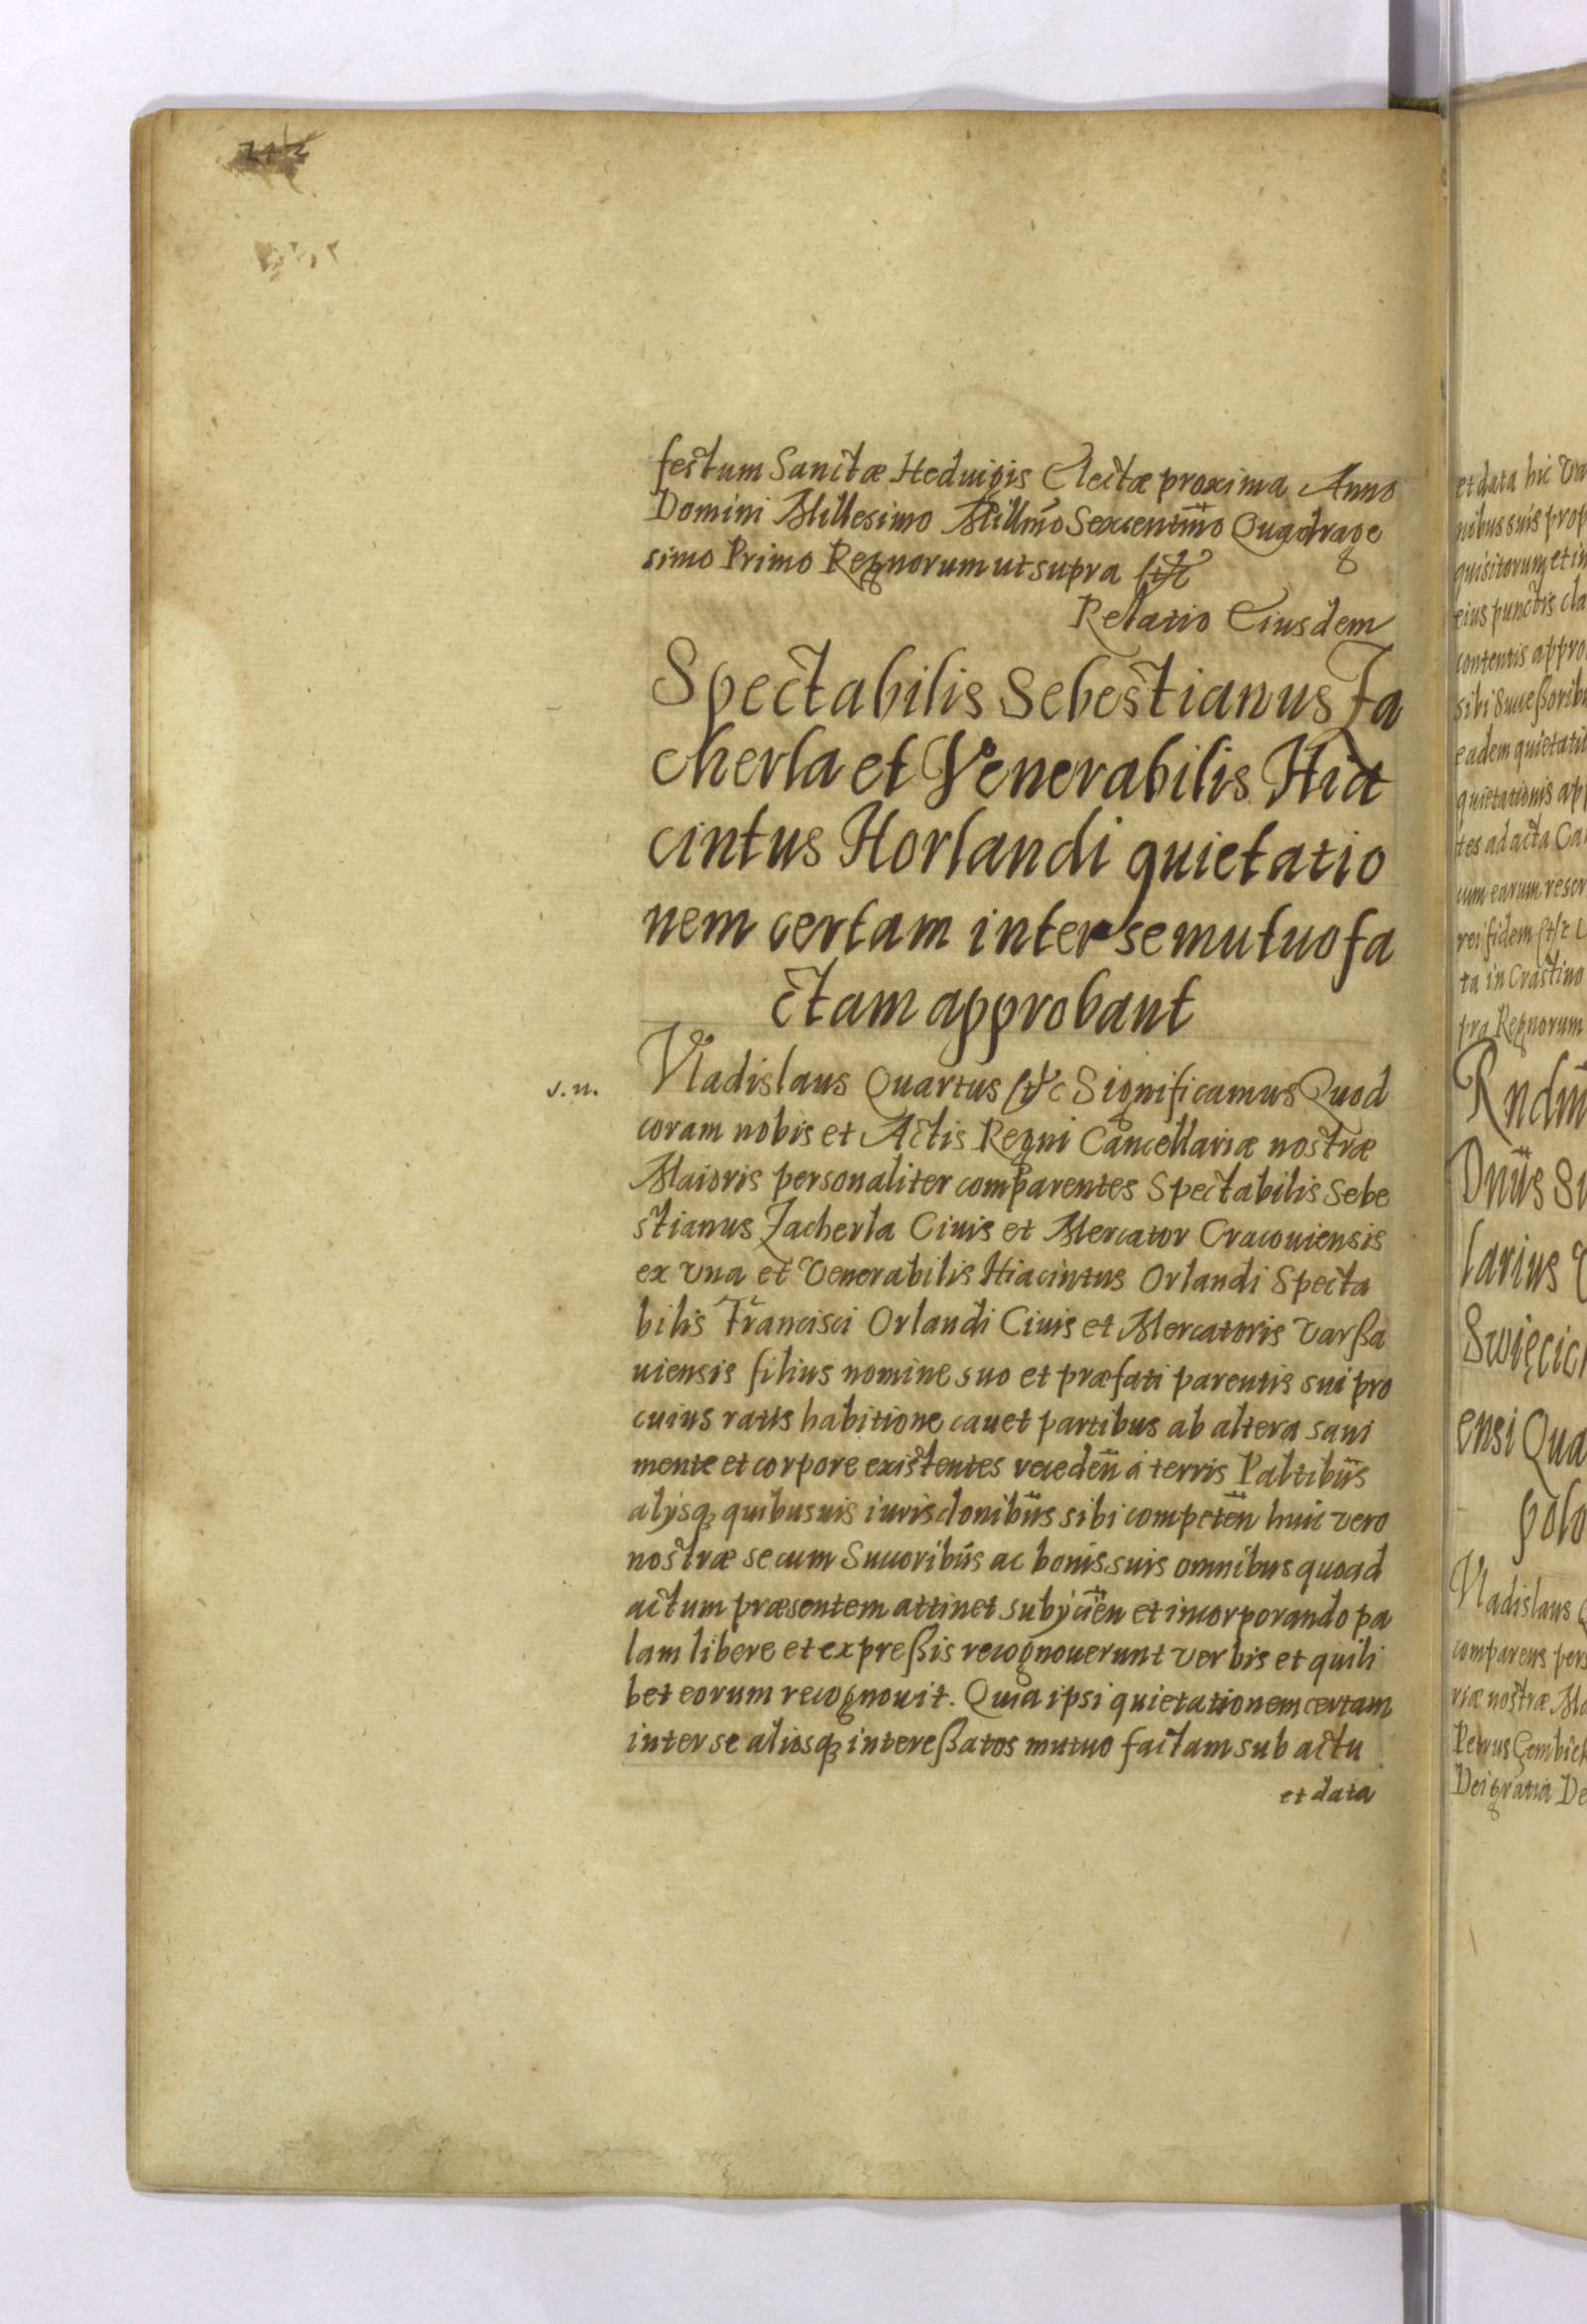 festum Sanctæ Heduigis Electæ proxima Anno
Domini Millesimo Millm̃o Sexcentm̃o Quadrage
simo Primo Regnorum ut supra etc
Relatio Eiusdem
Spectabilis Sebestianus Za
cherla et Venerabilis Hia
cintus Horlandi quietatio
nem certam inter se mutuo fa
ctam approbant
s. n.
Vladislaus Quartus etc Significamus Quod
coram nobis et Actis Regni Cancellariæ nostræ
Maioris personaliter comparentes Spectabilis Sebe
stianus Zacherla Ciuis et Mercator Cracouiensis
ex vna et Venerabilis Hiacintus Orlandi Specta
bilis Francisci Orlandi Ciuis et Mercatoris Varßa
uiensis filius nomine suo et præfati parentis sui pro
cuius ratis habitione cauet partibus ab altera sani
mente et corpore existentes receden̄ á terris Paltibus̄
alÿsq quibusuis iurisdonibus̄ sibi competen̄ huic vero
nostræ se cum Succoribus̄ ac bonis suis omnibus quoad
actum præsentem attinet subÿcien̄ et incorporando pa
lam libere et expreßis recognouerunt verbis et quili
bet eorum recognouit. Quia ipsi quietationem certam
inter se aliosq intereßatos mutuo factam sub actu
et data
et data hic
nibus suis
quisitorum et in
eius punctis
contentis
sibi
eadem
quietationis
tes ad acta
cum earum
rei fidem etc
ta in Crastino
pra Regnorum
Dnus̄
larius
ensi
polo
Vladislaus
comparens
riæ nostræ
Petrus Gembick
Dei gratia De